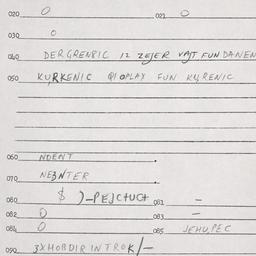 020 0 021 0
030 0
040 DERGRENBIC 12 ZEJER VAJT FUNDANEN
050 KURKENIC PIOPLAY FUN KURENIC
060 NDENT
070 NEBNTER
080 $ )-PEJCTUCT 081 -
082 0 083 -
084 0 085 JEHUPEC
090 3XHOBDIR IN TROK/-